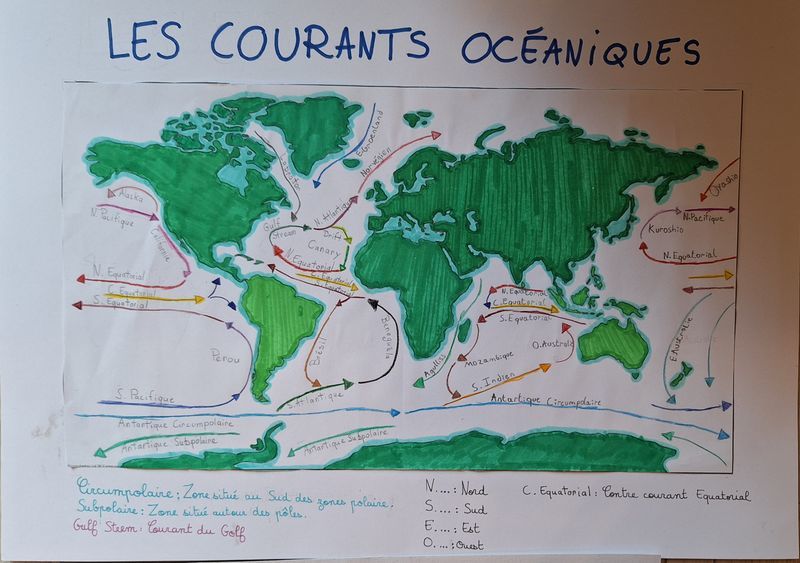 LES COURANTS OCÉANIQUES
Groenland
Norvégien
Labrador
Oyashio
Alaska
N. Pacifique
Californie
Gulf
Stream
N. Atlantique
Drift
Canary
N. Pacifique
Kuroshio
N. Equatorial
N. Equatorial
C. Equatorial
S. Equatorial
N. Equatorial
C. Equatorial
S. Equatorial
N. Equatorial
C. Equatorial
S. Equatorial
Pérou
Brésil
Benguela
Agullas
Mozambique
O. Australe
E. Australie
S. Pacifique
S. Atlantique
S. Indien
Antartique Circumpolaire
Antartique Circumpolaire
Antartique Subpolaire
Antartique Subpolaire
Circumpolaire : Zone situé au Sud des zones polaire.
Subpolaire : Zone situé autour des pôles.
Gulf Steem : Courant du Golf
N.... : Nord
S.... : Sud
E.... : Est
O.... : Ouest
C. Equatorial : Contre courant Equatorial